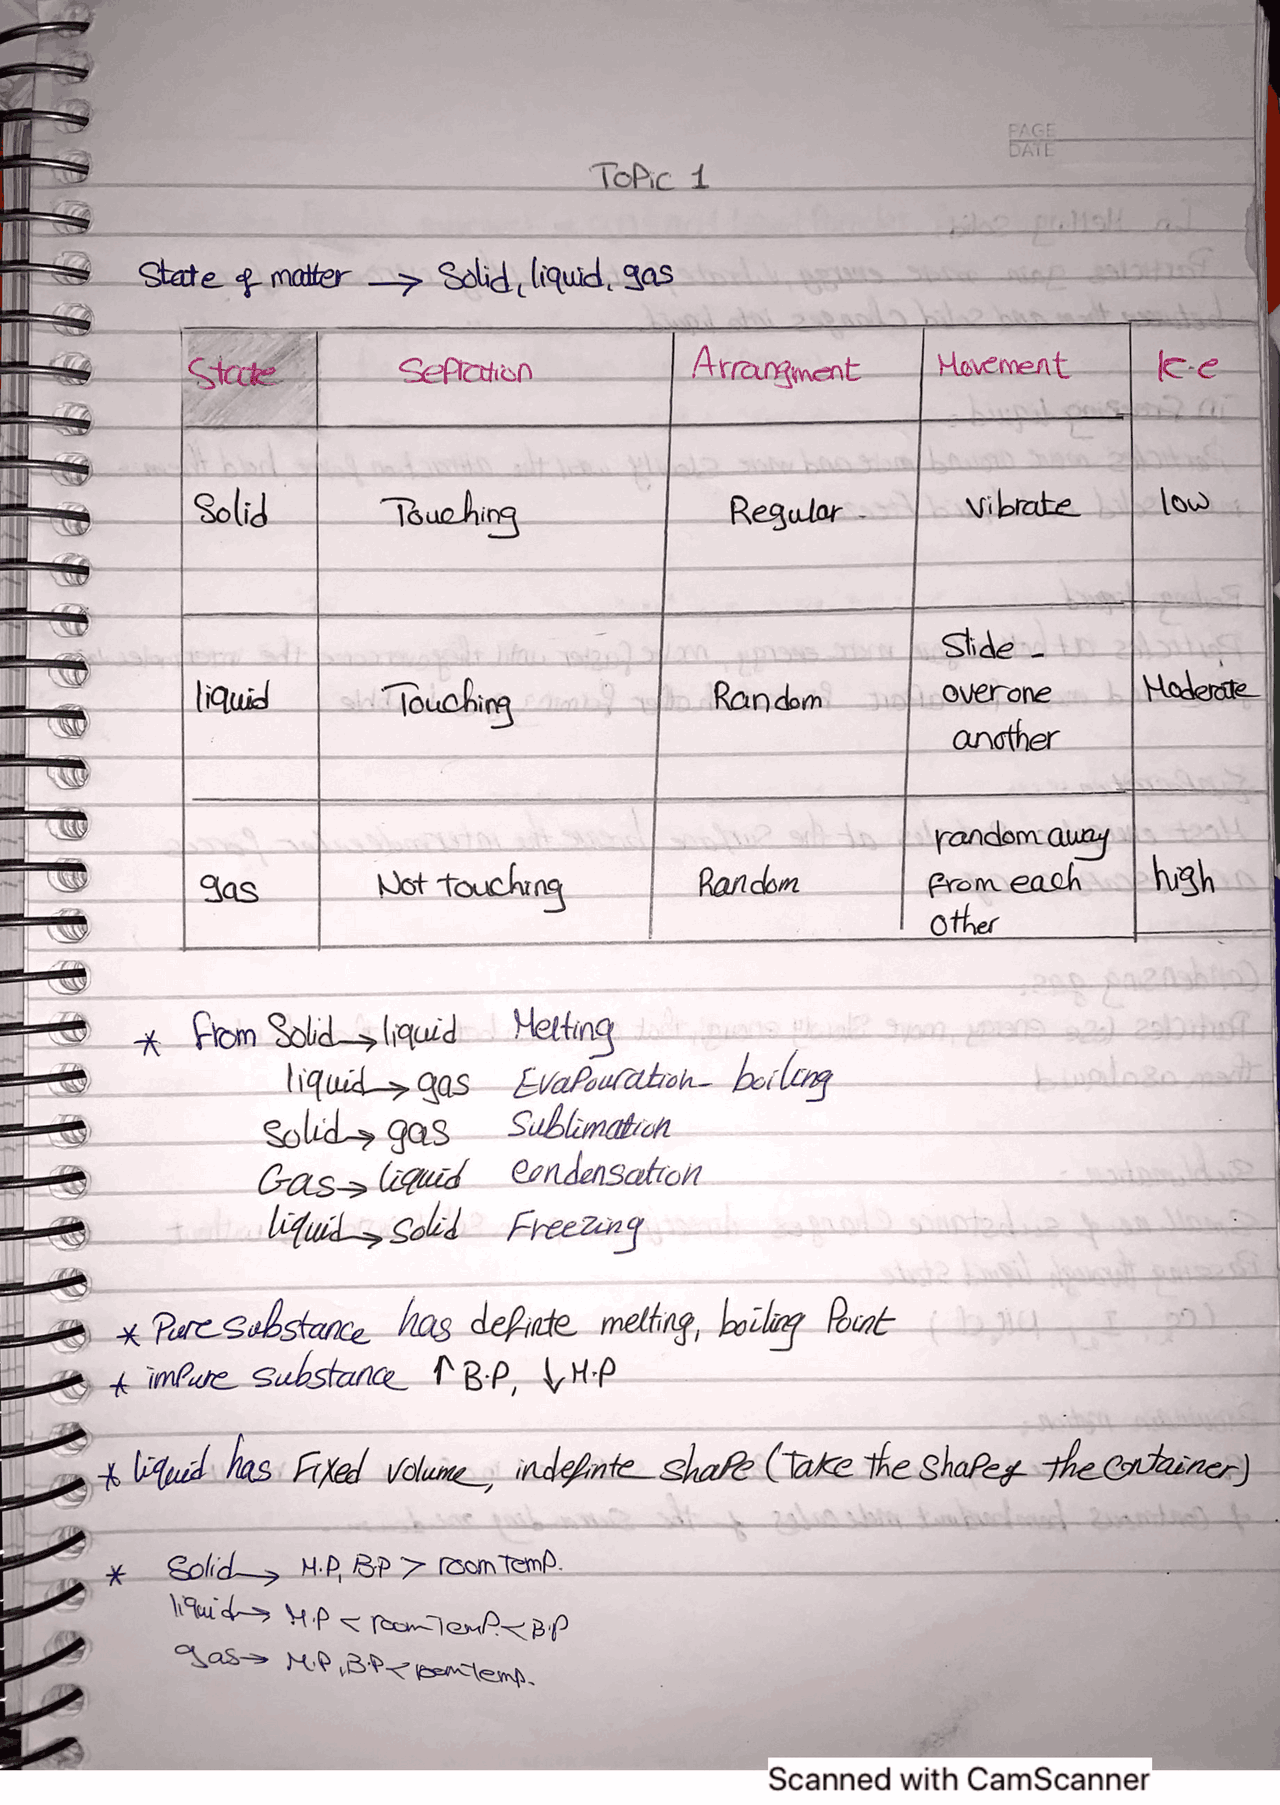 PAGE
DATE
Topic 1
State of matter → Solid, liquid, gas
State Sepration Arrangment Movement K.e
Solid Touching Regular. vibrate low
liquid Touching Random Slide - over one another Moderate
gas Not touching Random random away from each other high
* from Solid → liquid Melting
liquid → gas Evapouration - boiling
solid → gas Sublimation
Gas → liquid condensation
liquid → solid Freezing
* Pure substance has definte melting, boiling Point
* impure substance ↑ B.P, ↓ M.P
* liquid has Fixed volume, indefinte shape (Take the shape of the container)
* Solid → M.P, B.P > room Temp.
liquid → M.P < room Temp. < B.P
gas → M.P, B.P < room Temp.
Scanned with CamScanner